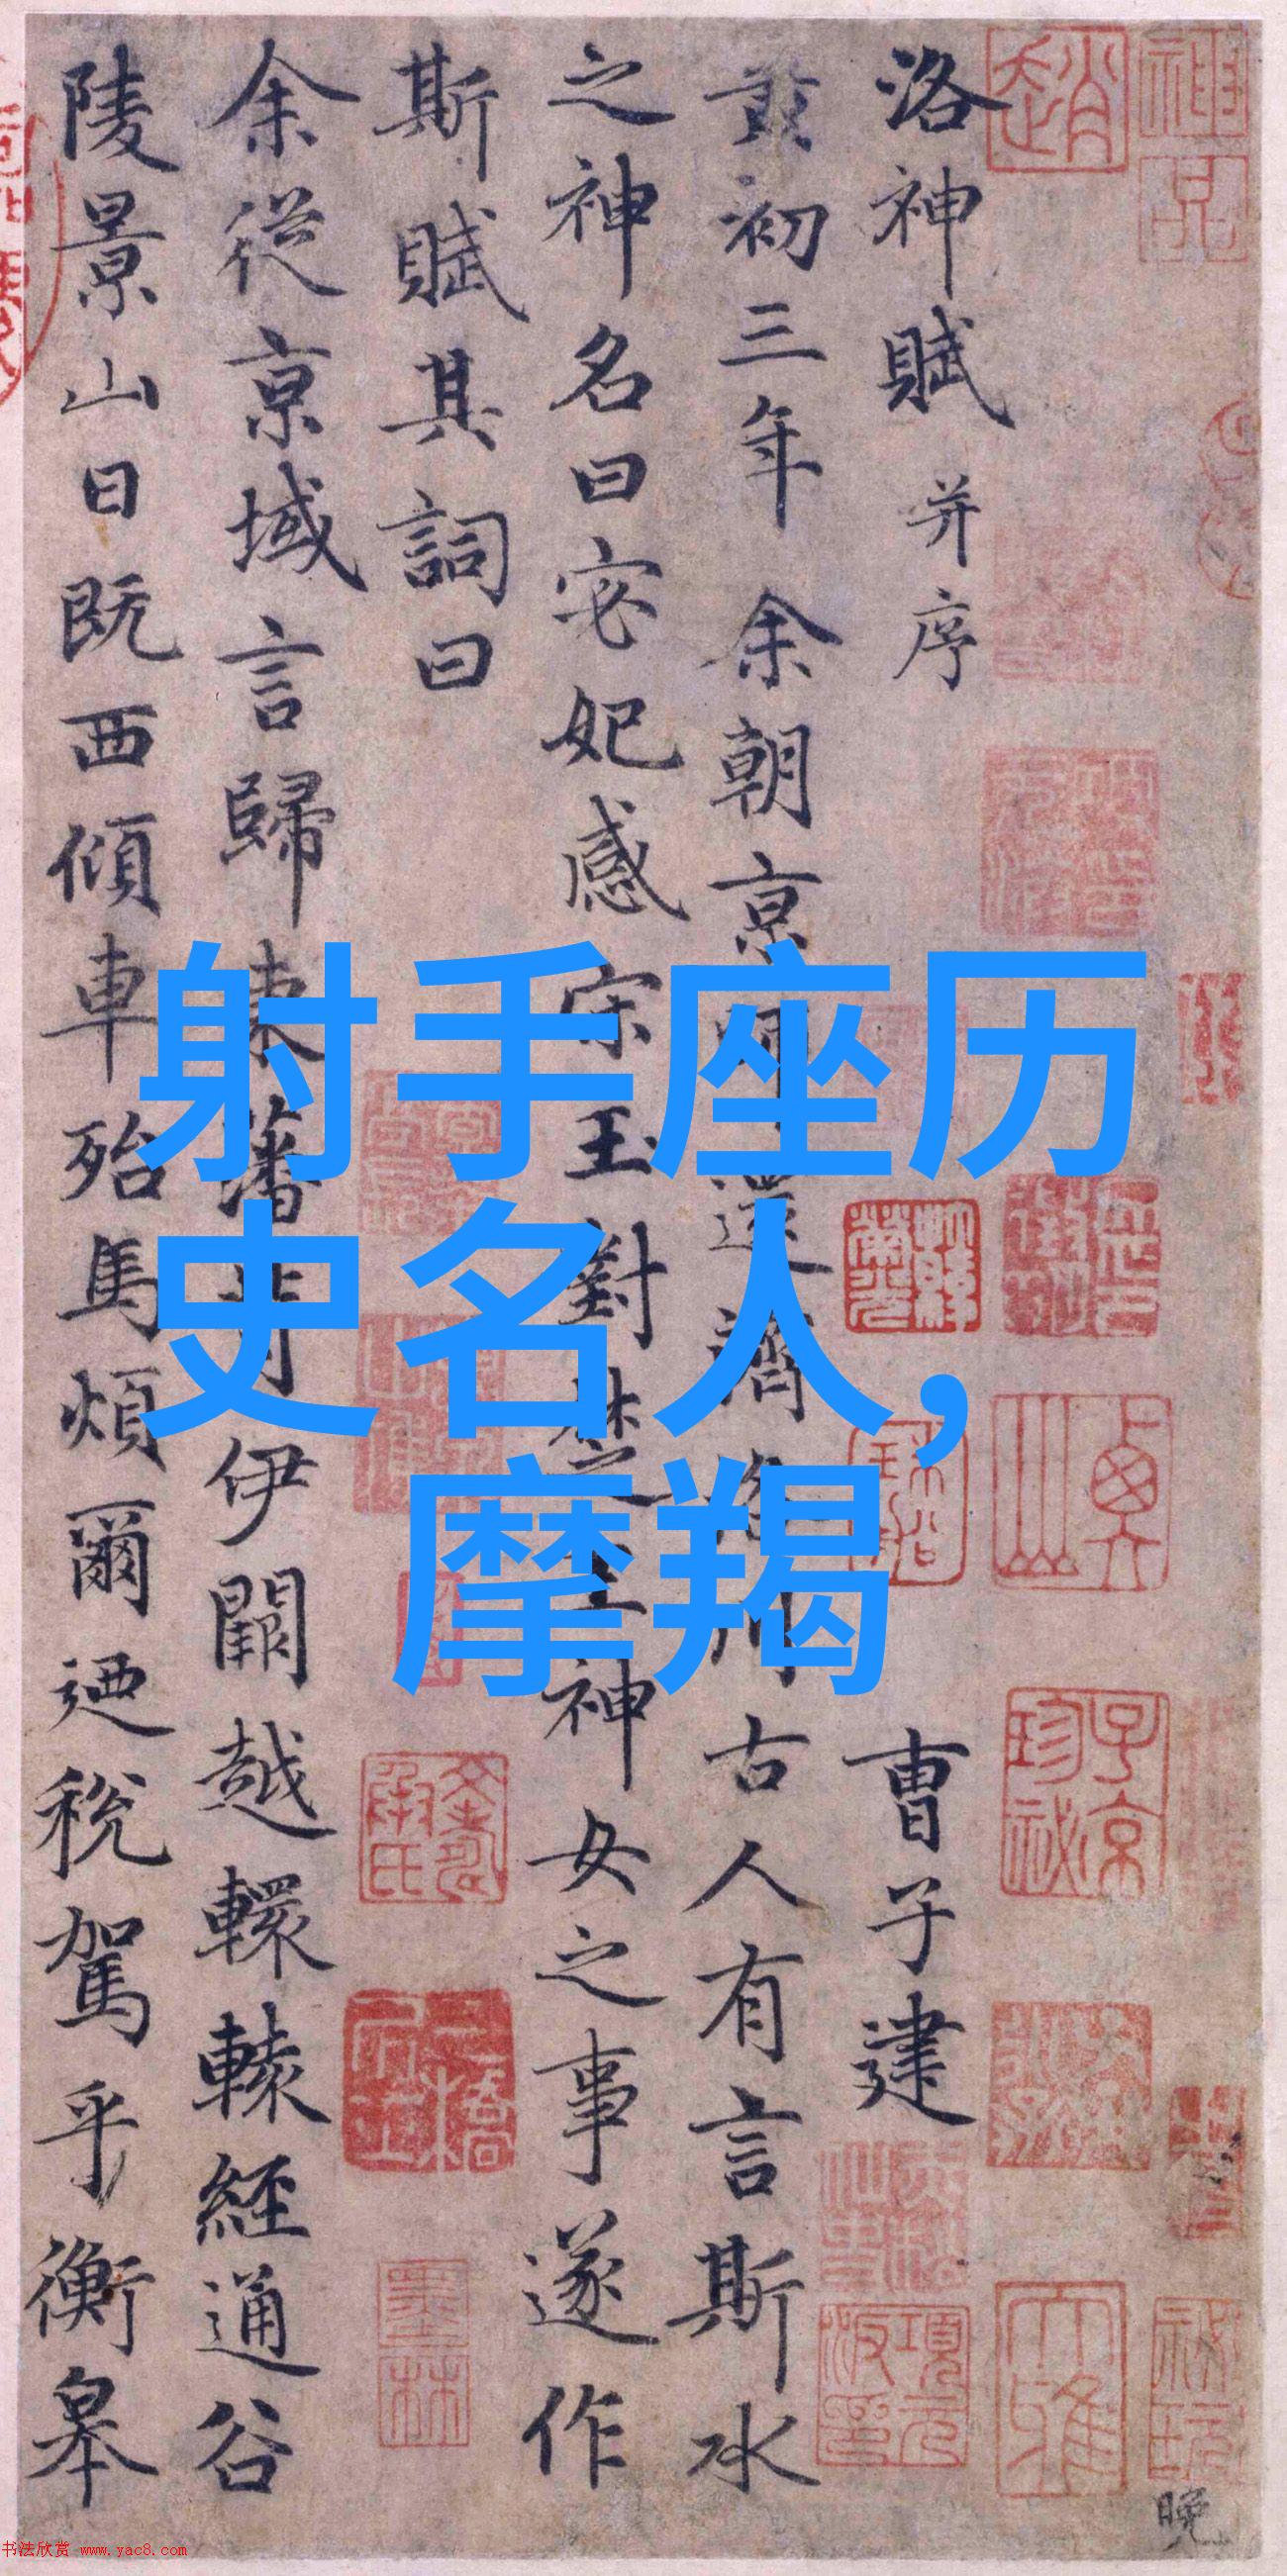 洛神賦 并序 曹子建
黄初三年 余朝京
古人有言斯水
之神名曰宓妃感宋玉對楚王神女之事遂作
斯賦其詞曰
余從京域言歸東藩背伊闕越轘轅經通谷
陵景山日既西傾車殆馬煩爾迺稅駕乎衡皋
射手座历
史名人，
摩羯
子京
珍祕
墨林
晚
书法欣赏 www.yac8.com